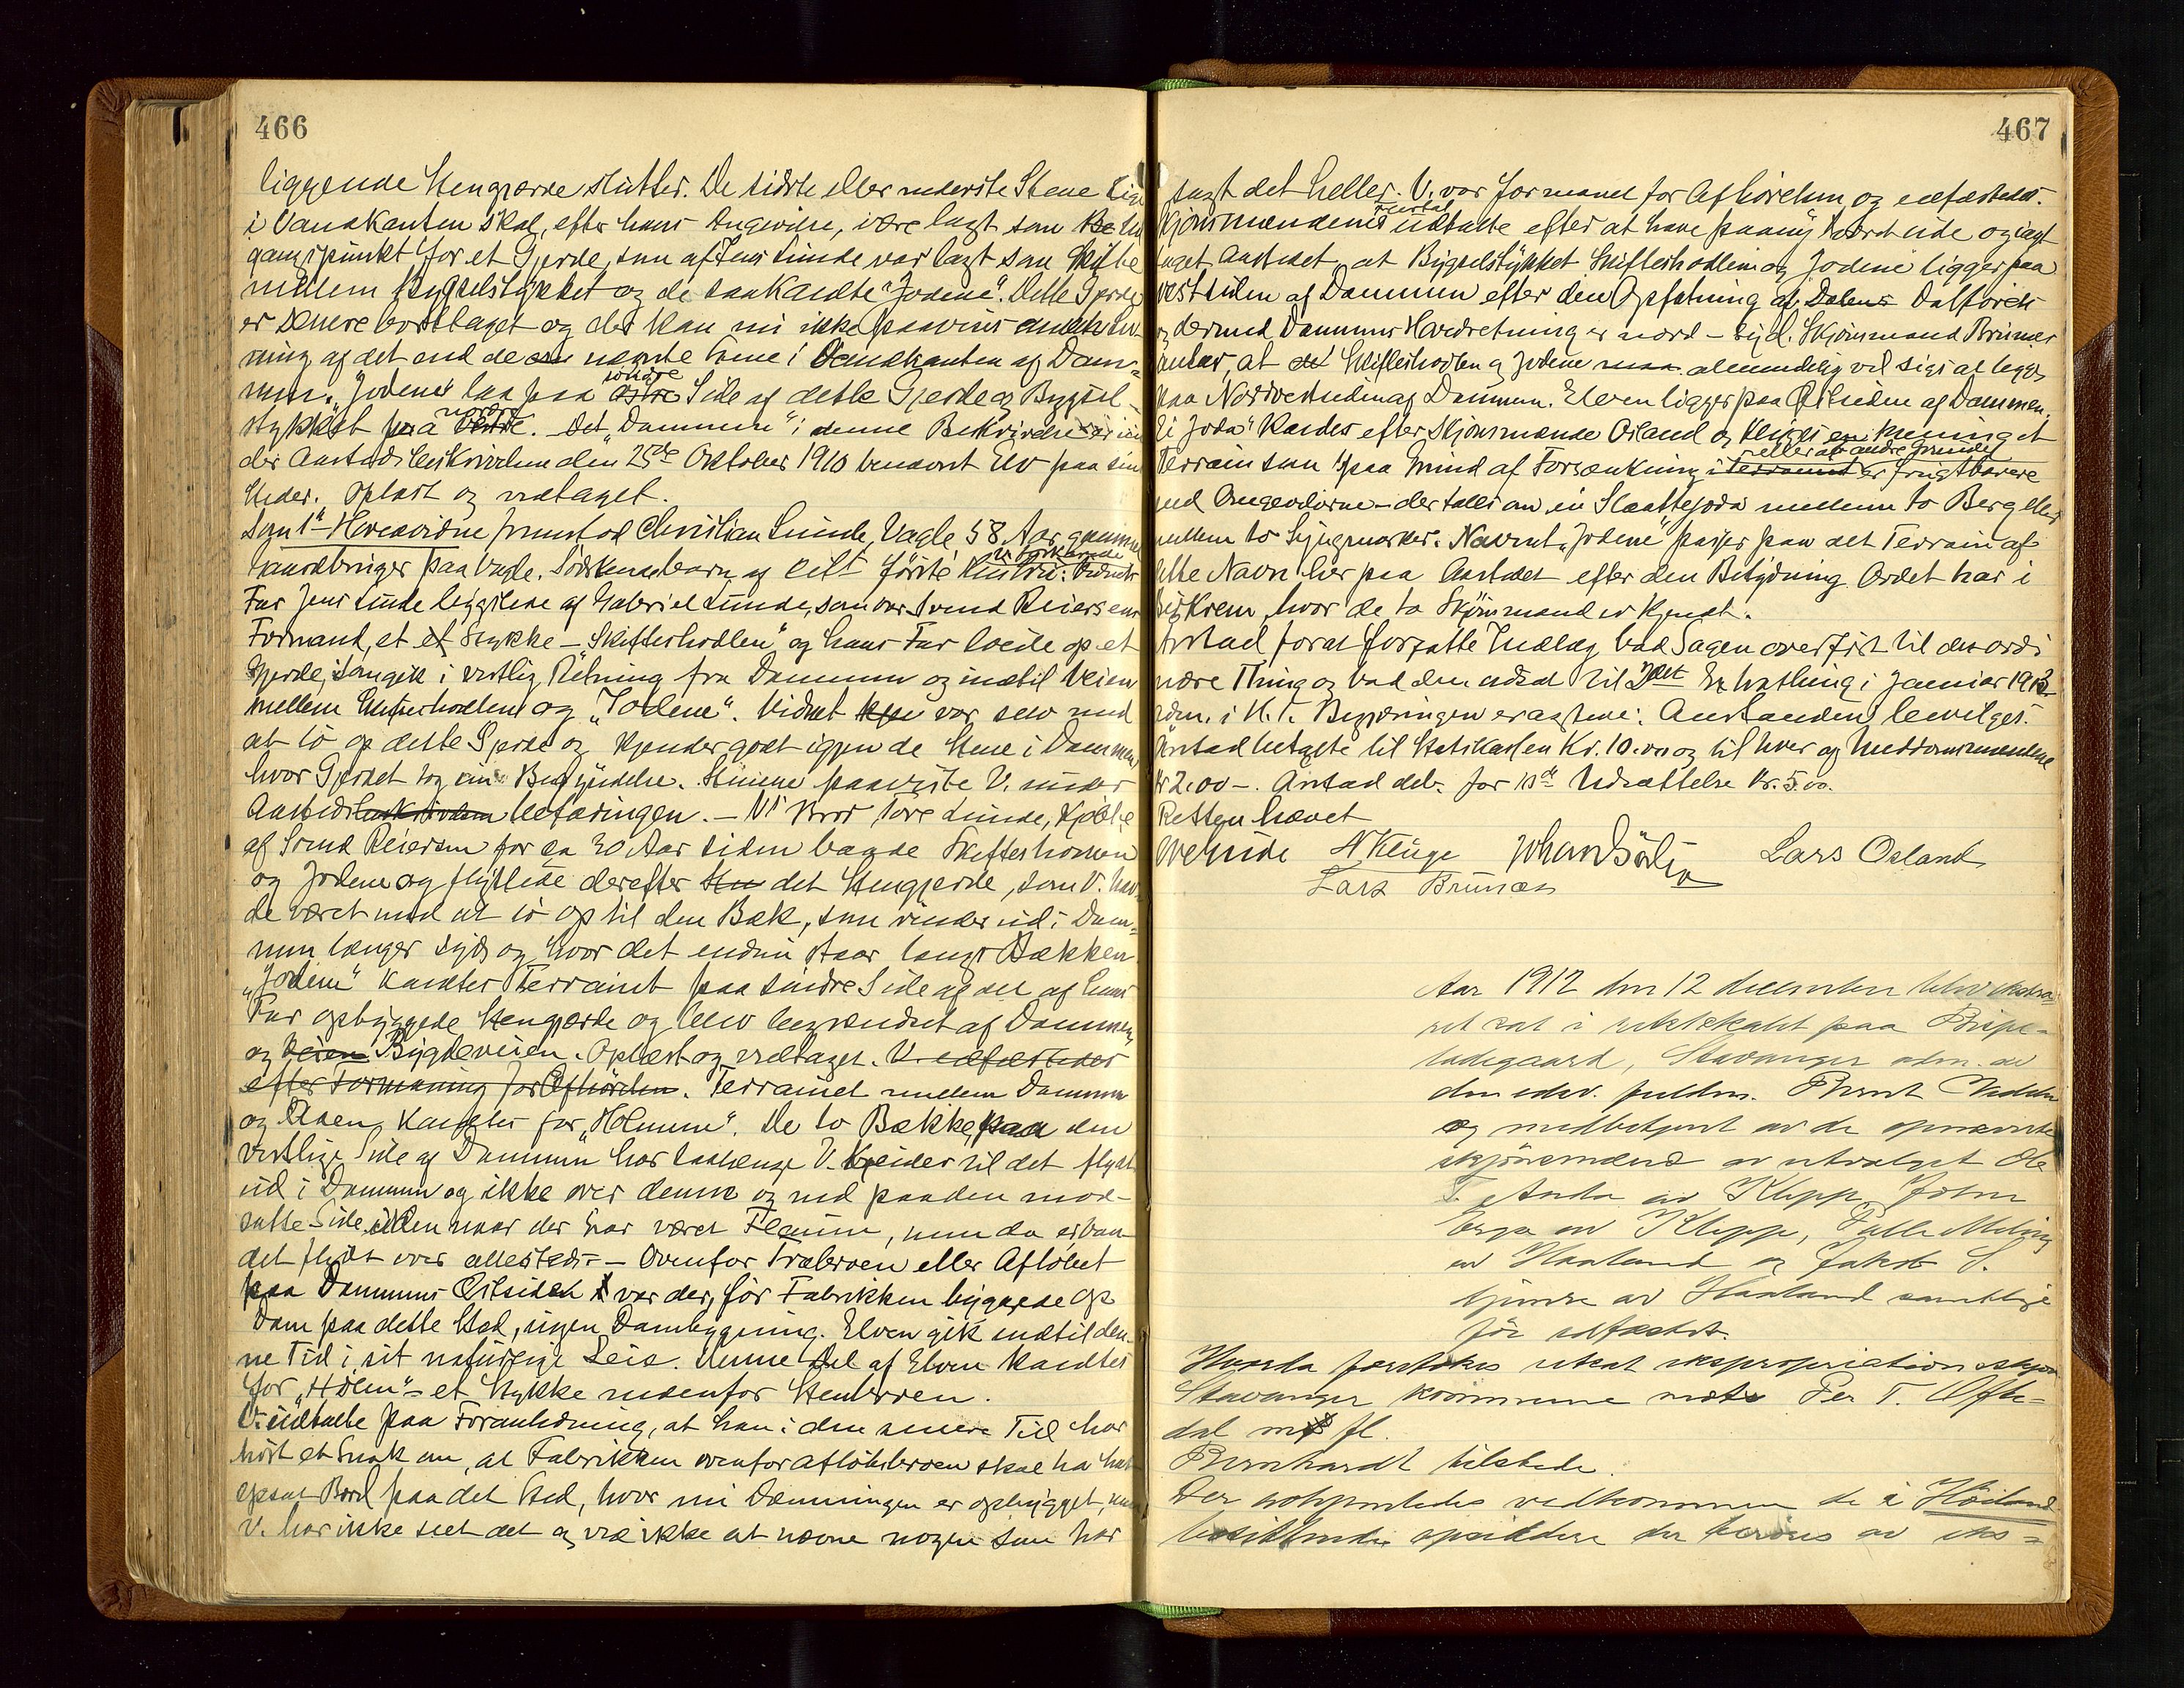 466
liggende Stengjærde slutter. De sidste eller nederste Stene
i Vandkanten skal, efter hans Angivelse, være lagt som Ud
gangspunkt for et Gjerde, som af Jens Lunde var lagt som Skille
mellem Bygselstykket og de saakaldte "Jodene". Dette Gjerde
er senere borttaget og det kan nu ikke paavises anden Lev-
ning af det end de nævnte Stene i Vandkanten af Dam-
men. "Jodene" laa paa søndre Side af dette Gjerde og Bygsel-
stykket paa nordre. Det "Dammen" i denne Beskrivelse er
der Aastedsbeskrivelsen den 25de Oktober 1910 benævnt Elv paa sine
Steder. Oplæst og vedtaget.
Som 1st Hovedvidne fremstod Christian Lunde, Vagle 58 Aar, gammel
Gaardbruger paa Vagle. Sødskendebarn af Citt første Vidnets
Far Jens Lunde leggslene af Gabriel Lunde, som var Svend Reiersens
Formand, et Stykke - "Skifteshodlen" og hans Far loede op et
Gjerde, som gik i vestlig Retning fra Dammen og indtil Veien
mellem Skifteshodlen og "Jodene". Vidnet var selv med
at lø op dette Gjerde og kjender godt igjen de Stene i Dammen
hvor Gjerdet tog sin Begyndelse. Stenene paaviste V. under
Aasteds Befaringen. - V's Bror Tore Lunde, kjøbte
af Svend Reiersen for ca 30 Aar siden baade Skifteshomen
og Jodene og flyttede derefter det Stengjerde, som V. hav-
de været med at lø op til den Bæk, som rinder ud i Dam-
men længer syd og hvor det endnu staar langs Bækken
"Jodene" kaldtes Terrainet paa søndre Side af det af hans
Far opbyggede Stengjerde og blev begrændset af Dammen,
og Veien Bygdeveien. Oplæst og vedtaget. V. edfæstedes
efter Formaning for Afhørelsen. Terrainet mellem Dammen
og Aaen kaldtes for "Holmene". De to Bække paa den
vestlige Side af Dammen har saalænge V. kjender til det flydt
ud i Dammen og ikke over denne og ned paa den mod-
satte Side uden naar der har været Flaum, men da er Van-
det flydt over allesteds. - Ovenfor Træbroen eller Afløbet
paa Dammens Østside var der, før Fabrikken byggede op
Dam paa dette Sted, ingen Dambygning. Elven gik indtil den-
ne Tid i sit naturlige Leie. Denne Del af Elven kaldtes
for "Hølen" - et Stykke nedenfor Stenbroen.
V. udtalte paa Foranledning, at han i den senere Tid har
hørt et Snak om, at Fabrikken ovenfor Afløbsbroen skal ha hat
opsat Bord paa det Sted, hvor nu Dæmningen er opbygget, men
V. har ikke seet det og ved ikke at nævne nogen som har
467
sagt det heller. V. var formanet for Afhørelsen og edfæstedes.
Skjønsmændenes Flertal udtalte efter at have paany været ude og iagt
taget Aastedet at Bygselstykket Skifteshodlen og Jodene ligger paa
Vestsiden af Dammen efter den Opfatning af Dalens Dalføreh
og dermed Dammens Hovedretning er nord - syd. Skjønsmand Brunes
mener, at Skifteshodlen og Jodene maa almindelig vel sies at ligge
paa Nordvestsiden af Dammen. Elven ligger paa Østsiden af Dammen.
"Ei Joda" kaldes efter Skjønsmænde Osland og Kluges mening et
Terrain som paa Grund af Forsænkning i Terrainet eller af andre Grunde er frugtbarere
end Omgevelserne - der talles om en Slaattejoda mellem to Berg eller
mellem to Lyngmarker. Navnet "Jodene" passer paa det Terrain af
dette Navn her paa Aastedet efter den Betydning Ordet har i
Bjerkrem, hvor de to Skjønsmænd er kjendt.
Anstad forat forfatte Indlæg bad Sagen overført til det ordi
nære Thing og bad den udsat til 2det Extrathing i Januar 1913
adm. i H. T. Begjæringen er agtene. Anstanden bevilges.
Anstad betalte til Statskassen Kr. 10.00 og til hver af Meddomsmændene
Kr 2.00 -. Anstad deb. for 10de Udsættelse Kr. 5.00.
Retten hævet
Ove Lunde N Kluge Johan Sörlie Lars Osland
Lars Brunes
Aar 1912 den 12 december blev ekstra
ret sat i retslokalet paa Bispe-
ladegaard, Stavanger adm. av
den edsv. fuldm. Bernt Nedden
og medbetjent av de opnævnte
skjönsmænd av utvalget Ole
T. Anda av Klepp, John
Erga av Klepp, Palle Meling
av Haaland og Jakob S.
Njærse av Haaland samtlige
för edfæstet.
Hvorda foretokes utsat ekspropriationsskjøn
Stavanger kommune mots Per T. Ofte-
dal m fl.
Bernhardt tilstede.
Der avhjemledes vedkommen de i Høiland
besittende opsiddere der berøres av eks-